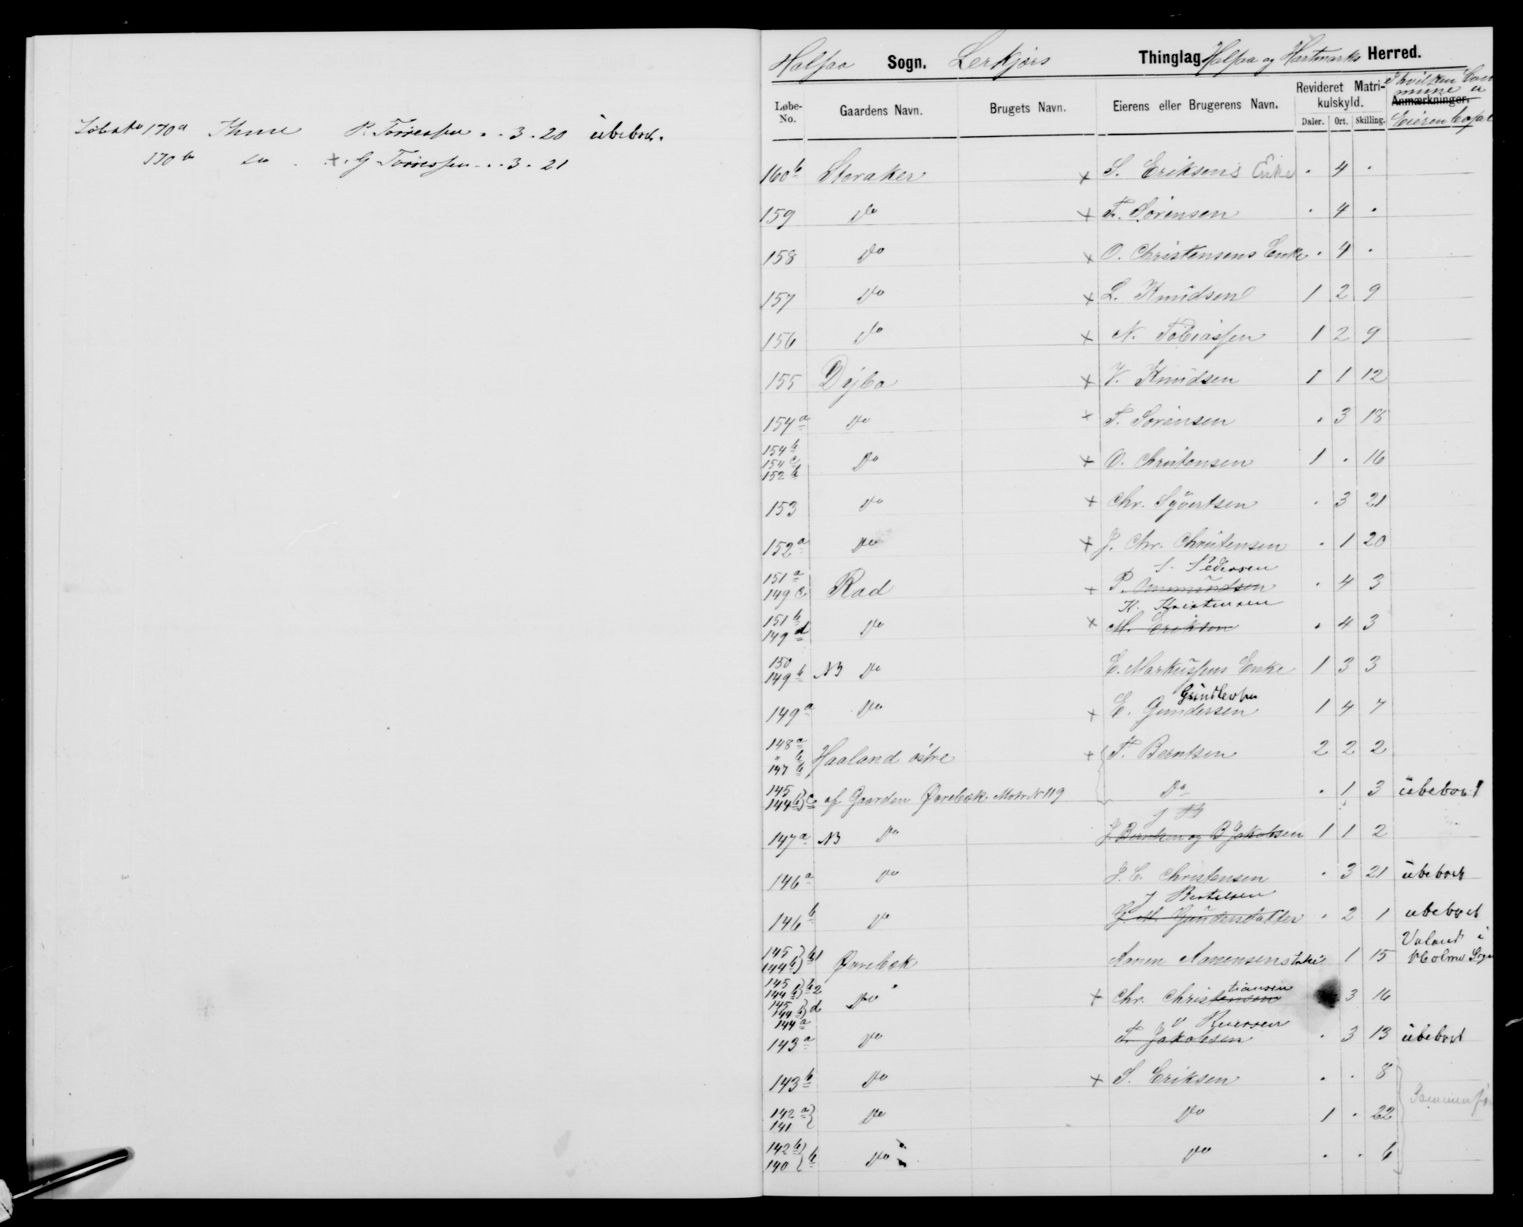 Løbe No 170a Thue P. Torresen . . 3 . 20 übeboet.
170b do x. G Torressen . . 3 . 21
Halsaa Sogn. Lerkjærs Thinglag Halsa og Hartmarks Herred.
Løbe-No. Gaardens Navn. Brugets Navn. Eierens eller Brugerens Navn. Revideret Matrikulskyld. Daler. Ort. Skilling. Anmærkninger.
160b Storaker x S. Eriksens Enke . 4 .
159 do x T. Sørensen . 4 .
158 do x O. Christensens Enke . 4 .
157 do x L. Knudsen 1 2 9
156 do x N. Tobiassen 1 2 9
155 Dybo x V. Knudsen 1 1 12
154a do x T. Sørensen . 3 18
154b 154c 152b do x O. Christensen 1 . 16
153 do x Chr. Syvertsen . 3 21
152a do x J. Chr. Christensen . 1 20
S. Pedersen
151a 149c Rad x P. Ammundsen . 4 3
K. Kristensen
151b 149d do x M. Eriksen . 4 3
150 149b N3 do E. Markussens Enke 1 3 3
Gundersen
149a do x E. Gundersen 1 4 7
148a " b 147b Haaland østre x T. Berntsen 2 2 2
145 144b) c af Gaarden Øvrebæk Matr. N 119 Do . 1 3 übeboet
147a N3 do J Berntsen og B Jakobsen 1 1 2
146a do J. C. Christensen . 3 21 übeboet
J Bertelsen
146b do . 2 1 übeboet
145 144b) b1 Øvrebæk Aanen Aanensens Enke 1 15 Valand i Holme Sogn
145 144b) b2 145 144b) d do x Chr. Christensen tiansen 3 16
144a 143a do T. Jakobsen . 3 13 übeboet
143b do x S. Eriksen . . 8
142a 141 } do do 1 . 22
142b 140 } b do do . . 6